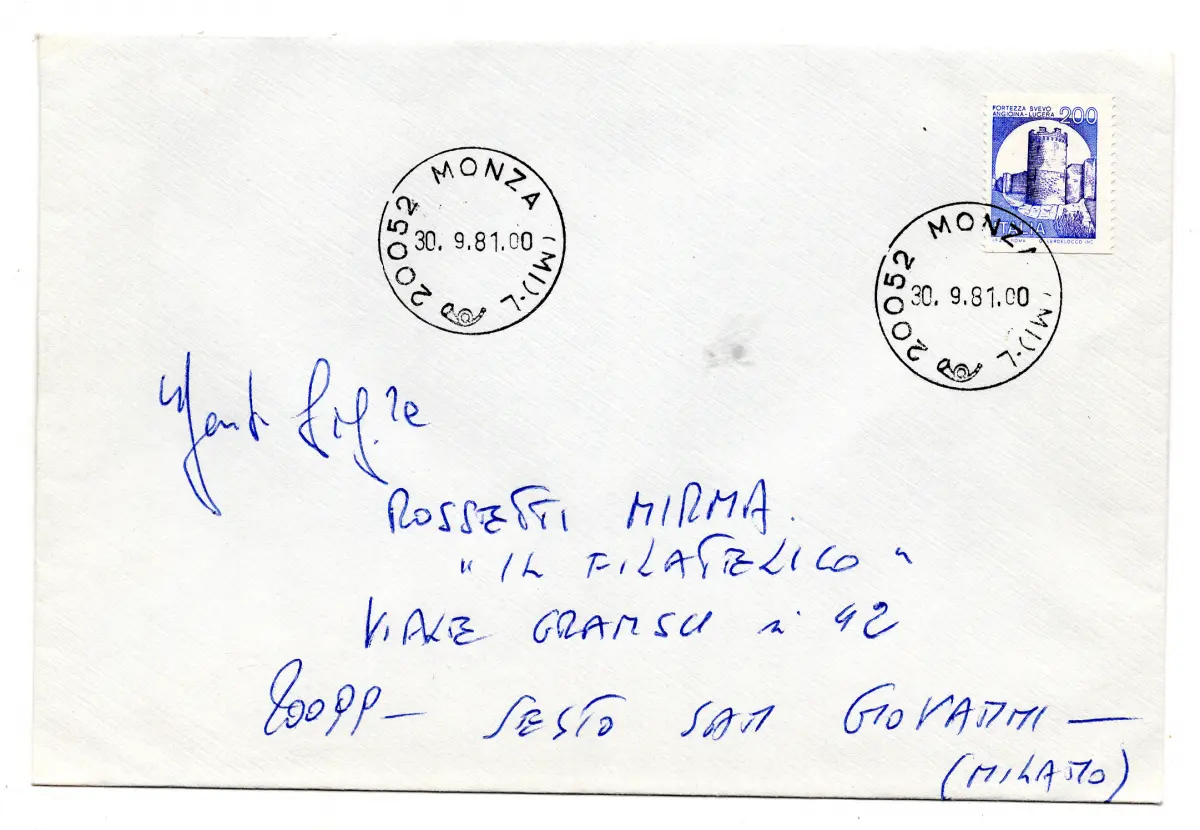 FORTEZZA SVEVO
ANGIOINA-LUCERA 200
ITALIA
MONZA
20052
(MI)-L
30. 9.81.00
MONZA
20052
(MI)-L
30. 9.81.00
Gent. Sig.re
ROSSETTI MIRMA.
"IL FILATELICO"
VIALE GRAMSCI n° 42
20099 - SESTO SAN GIOVANNI -
(MILANO)